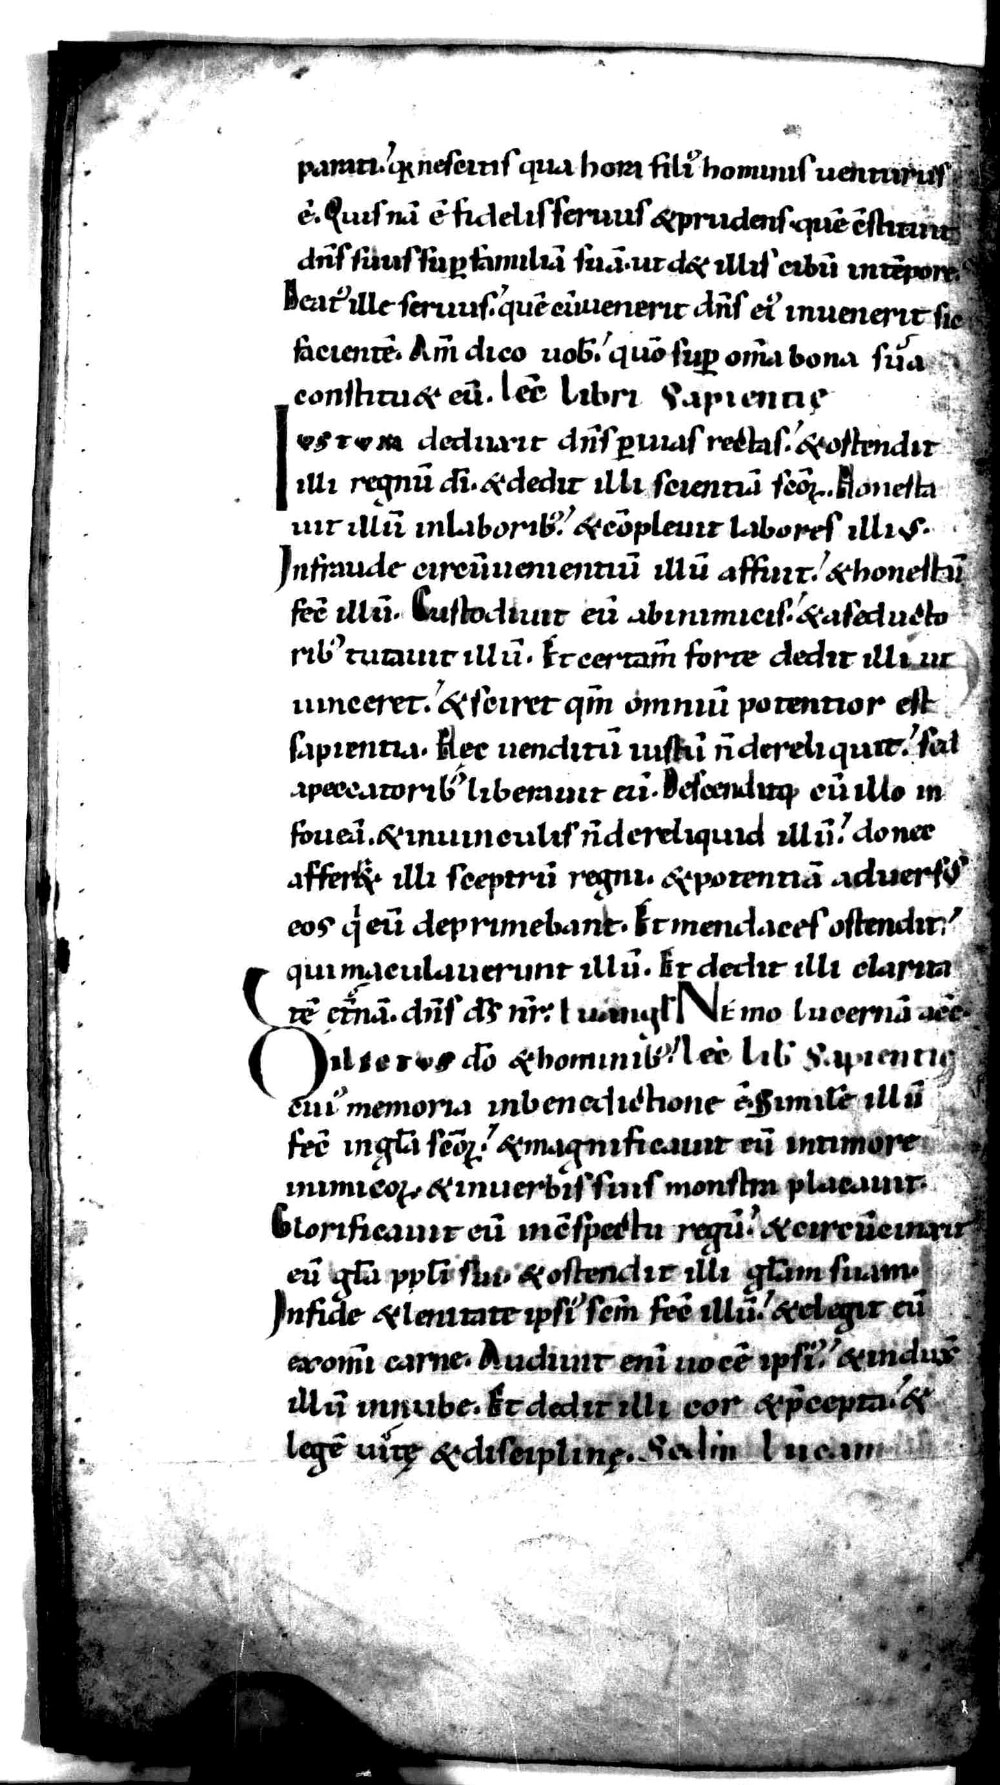 parati.' q̄ nescitis qua hora filiꝰ hominis uenturus
ē. Quis nā ē fidelis seruus & prudens. quē c̄stituit
dn̄s suus suꝑ familiā suā. ut d& illis cibū in tēpore.
Beatꝰ ille seruus.' quē cū uenerit dn̄s eiꝰ inuenerit sic
facientē. Am̄ dico uob̄.' qūo suꝑ om̄a bona sua
constitu& eū. lec̄ libri Sapientię
Iustum deduxit dn̄s ꝑ uias rectas.' & ostendit
illi regnū dī. & dedit illi scientiā sc̄oꝝ. Honesta
uit illū in laboribꝰ.' & cōpleuit labores illius.
In fraude circūuenientiū illū affuit.' & honestū
fec̄ illū. Custodiuit eū ab inimicis.' & a seducto
ribꝰ tutauit illū. Et certam̄ forte dedit illi ut
uinceret.' & sciret qm̄ omniū potentior est
sapientia. Hec uenditū iustū n̄ dereliquit.' sed
a peccatoribꝰ liberauit eū. Descenditq; cū illo in
foueā. & in uinculis n̄ dereliquid illū.' donec
affer&. illi sceptrū regni. & potentiā aduersꝰ
eos q̍ eū deprimebant. Et mendaces ostendit.'
qui maculauerunt illū. Et dedit illi clarita
tē et̄nā. dn̄s ds̄ nr̄. Euangl̄ Nemo lucernā acc̄.
Dilectus dō & hominibꝰ.' lec̄ lib̄ Sapientię
cuiꝰ memoria in benedictione ē. Simile illū
fec̄ in gl̄a sc̄oꝝ.' & magnificauit eū in timore
inimicoꝝ. & in uerbis suis monstra placauit.
Glorificauit eū in c̄spectu regū.' & circūcinxit
eū gl̄a ppl̄i sui. & ostendit illi gl̄am suam.
In fide & lenitate ipsiꝰ sc̄m fec̄ illū.' & elegit eū
ex om̄i carne. Audiuit enī uocē ipsiꝰ.' & indux̄
illū in nube. Et dedit illi cor & p̄cepta.' &
legē uitę & disciplinę. Scd̄m Lucam